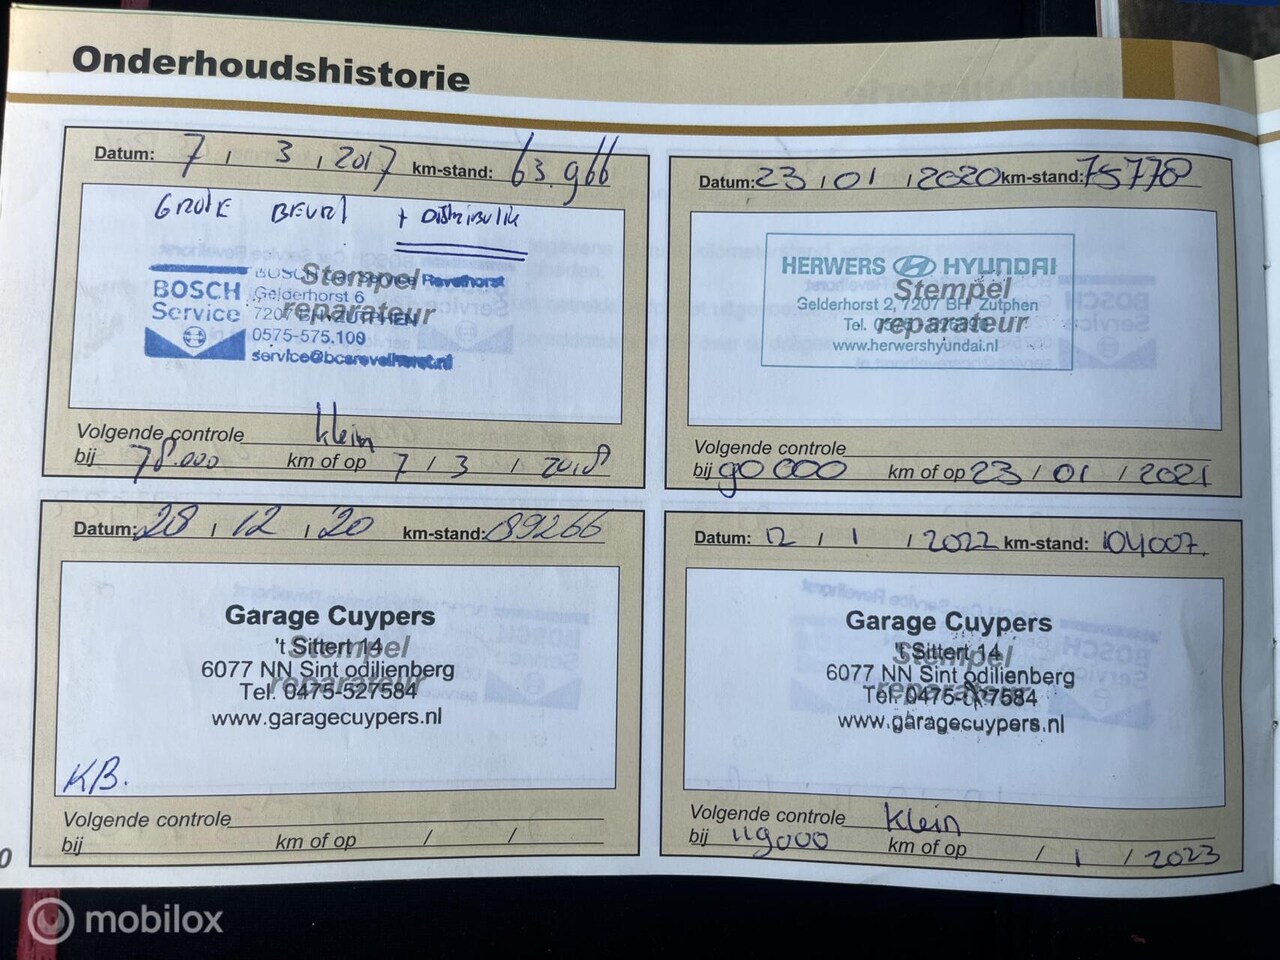 Onderhoudshistorie
Datum: 7 / 3 / 2017 km-stand: 63.966
GROTE BEURT + DISTRIBUTIE
Stempel
reparateur
BOSCH
Service
Revelhorst
Gelderhorst 6
ZUTPHEN
0575-575.100
service@bcsrevelhorst.nl
Volgende controle klein
bij 78.000 km of op 7 / 3 / 2018
Datum: 23 / 01 / 2020 km-stand: 75778
HERWERS HYUNDAI
Stempel
Gelderhorst 2, 7207 BH Zutphen
reparateur
Tel.
www.herwershyundai.nl
Volgende controle
bij 90 000 km of op 23 / 01 / 2021
Datum: 28 / 12 / 20 km-stand: 89266
Garage Cuypers
't Sittert 14
Stempel
6077 NN Sint odilienberg
reparateur
Tel. 0475-527584
www.garagecuypers.nl
KB.
Volgende controle
bij km of op / /
Datum: 12 / 1 / 2022 km-stand: 104007.
Garage Cuypers
't Sittert 14
Stempel
6077 NN Sint odilienberg
reparateur
Tel. 0475-527584
www.garagecuypers.nl
Volgende controle klein
bij 119000 km of op / 1 / 2023
0
mobilox